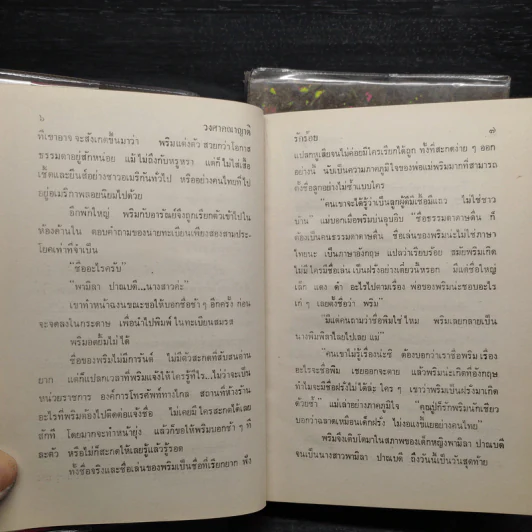 ๖
วงศาคณาญาติ
ที่เขาอาจจะสังเกตขึ้นมาว่า พริมแต่งตัวสวยกว่าโอกาส
ธรรมดาอยู่สักหน่อย แม้ไม่ถึงกับหรูหรา แต่ก็ไม่ใส่เสื้อ
เชิ้ตและยีนส์อย่างชาวอเมริกันทั่วไป หรืออย่างคนไทยที่ไป
อยู่อเมริกาพลอยนิยมไปด้วย
อีกพักใหญ่ พริมกับอารณย์จึงถูกเรียกตัวเข้าไปใน
ห้องด้านใน ตอบคำถามของนายทะเบียนเพียงสองสามประ-
โยคเท่าที่จำเป็น
“ชื่ออะไรครับ”
“พามิลา ปาณบดี...นางสาวค่ะ”
เขาทำหน้าฉงนขณะขอให้บอกชื่อช้า ๆ อีกครั้ง ก่อน
จะจดลงในกระดาษ เพื่อนำไปพิมพ์ในทะเบียนสมรส
พริมอดยิ้มไม่ได้
ชื่อของพริมไม่มีการันต์ ไม่มีตัวสะกดที่สับสนอ่าน
ยาก แต่ก็แปลกเวลาที่พริมแจ้งให้ใครรู้ทีไร...ไม่ว่าจะเป็น
หน่วยราชการ องค์การโทรศัพท์ทางไกล สถานที่ห้างร้าน
อะไรที่พริมต้องไปติดต่อแจ้งชื่อ ไม่เคยมีใครสะกดได้เลย
สักที โดยมากจะทำหน้ายุ่ง แล้วก็ขอให้พริมบอกช้า ๆ ที
ละตัว หรือไม่ก็สะกดให้เลยรู้แล้วรู้รอด
ทั้งชื่อจริงและชื่อเล่นของพริมเป็นชื่อที่เรียกยาก ฟัง
รักร้อย
๗
แปลกหูเสียจนไม่ค่อยมีใครเรียกได้ถูก ทั้งที่สะกดง่าย ๆ ออก
อย่างนั้น นับเป็นความภาคภูมิใจของพ่อแม่พริมมากที่สามารถ
ตั้งชื่อลูกอย่างไม่ซ้ำแบบใคร
“คนเขาจะได้รู้ว่าเป็นลูกผู้ดีมีเชื้อมีแถว ไม่ใช่ชาว
บ้าน” แม่บอกเมื่อพริมบ่นอุบอิบ “ชื่อธรรมดาดาษดื่น ก็
ต้องเป็นคนธรรมดาดาษดื่น ชื่อเล่นของพริมน่ะไม่ใช่ภาษา
ไทยนะ เป็นภาษาอังกฤษ แปลว่าเรียบร้อย สมัยพริมเกิด
ไม่มีใครมีชื่อเล่นเป็นฝรั่งอย่างเดี๋ยวนี้หรอก มีแต่ชื่อใหญ่
เล็ก แดง ดำ อะไรไปตามเรื่อง พ่อของพริมน่ะชอบอะไร
เก๋ ๆ เลยตั้งชื่อว่า พริม”
“มีแต่คนถามว่าชื่อพิมใช่ไหม พริมเลยกลายเป็น
นางพิมพิลาไลยไปเลย แม่”
“คนเขาไม่รู้เรื่องน่ะซี ต้องบอกว่าเราชื่อพริม เรื่อง
อะไรจะชื่อพิม เชยออกจะตาย แล้วพริมน่ะเกิดที่อังกฤษ
ทำไมจะมีชื่อฝรั่งไม่ได้ล่ะ ใคร ๆ เขาว่าพริมเป็นฝรั่งมาเกิด
ด้วยซ้ำ” แม่เล่าอย่างภาคภูมิใจ “คุณปู่ก็รักพริมนักเชียว
บอกว่าฉลาดเหมือนเด็กฝรั่ง ไม่งอแงขี้แยอย่างคนไทย”
พริมจึงเติบโตมาในสภาพของเด็กหญิงพามิลา ปาณบดี
จนเป็นนางสาวพามิลา ปาณบดี ถึงวันนี้เป็นวันสุดท้าย